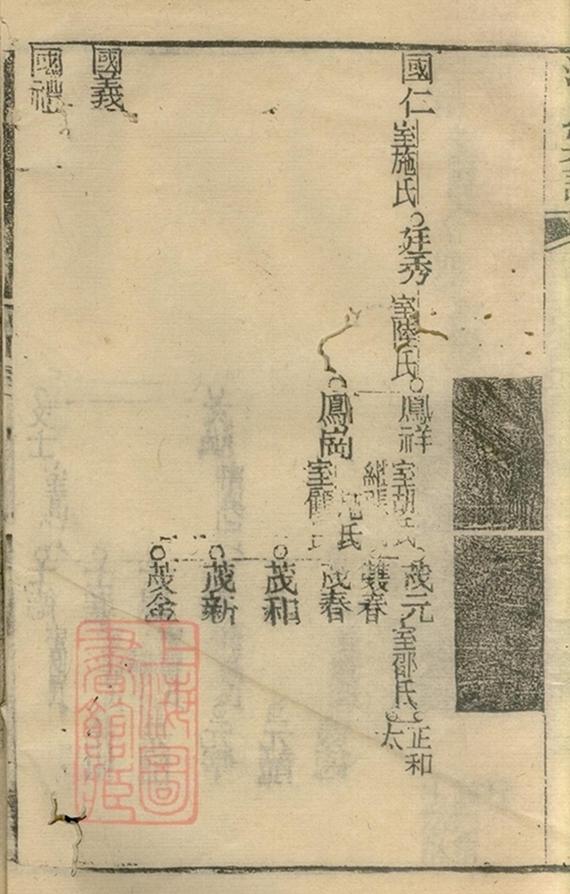 國仁室施氏
廷秀室陸氏
鳳祥室胡氏
茂元室邵氏
正和
太
雙春
鳳岡室
施氏
茂春
茂和
茂新
茂金
國義
國禮
上海圖書館藏